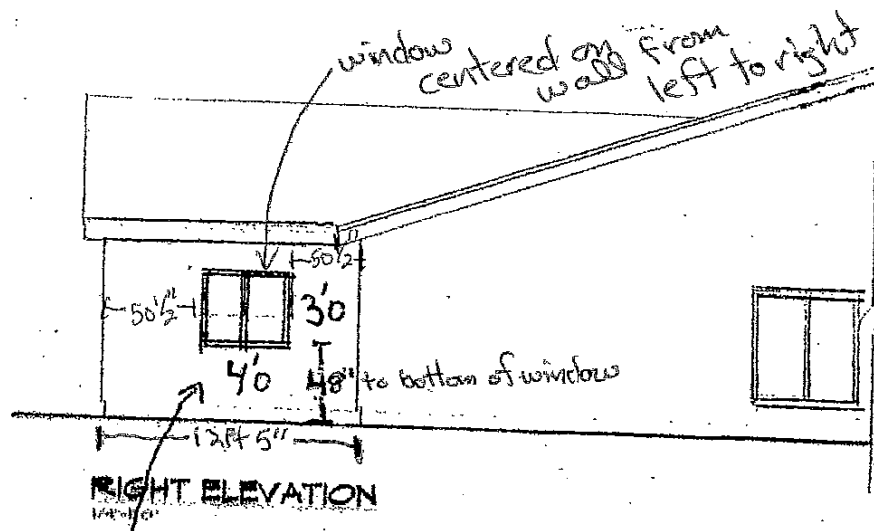 window
centered on
wall from
left to right
50 1/2
50 1/2"
3'0
4'0
48" to bottom of window
12ft 5"
RIGHT ELEVATION